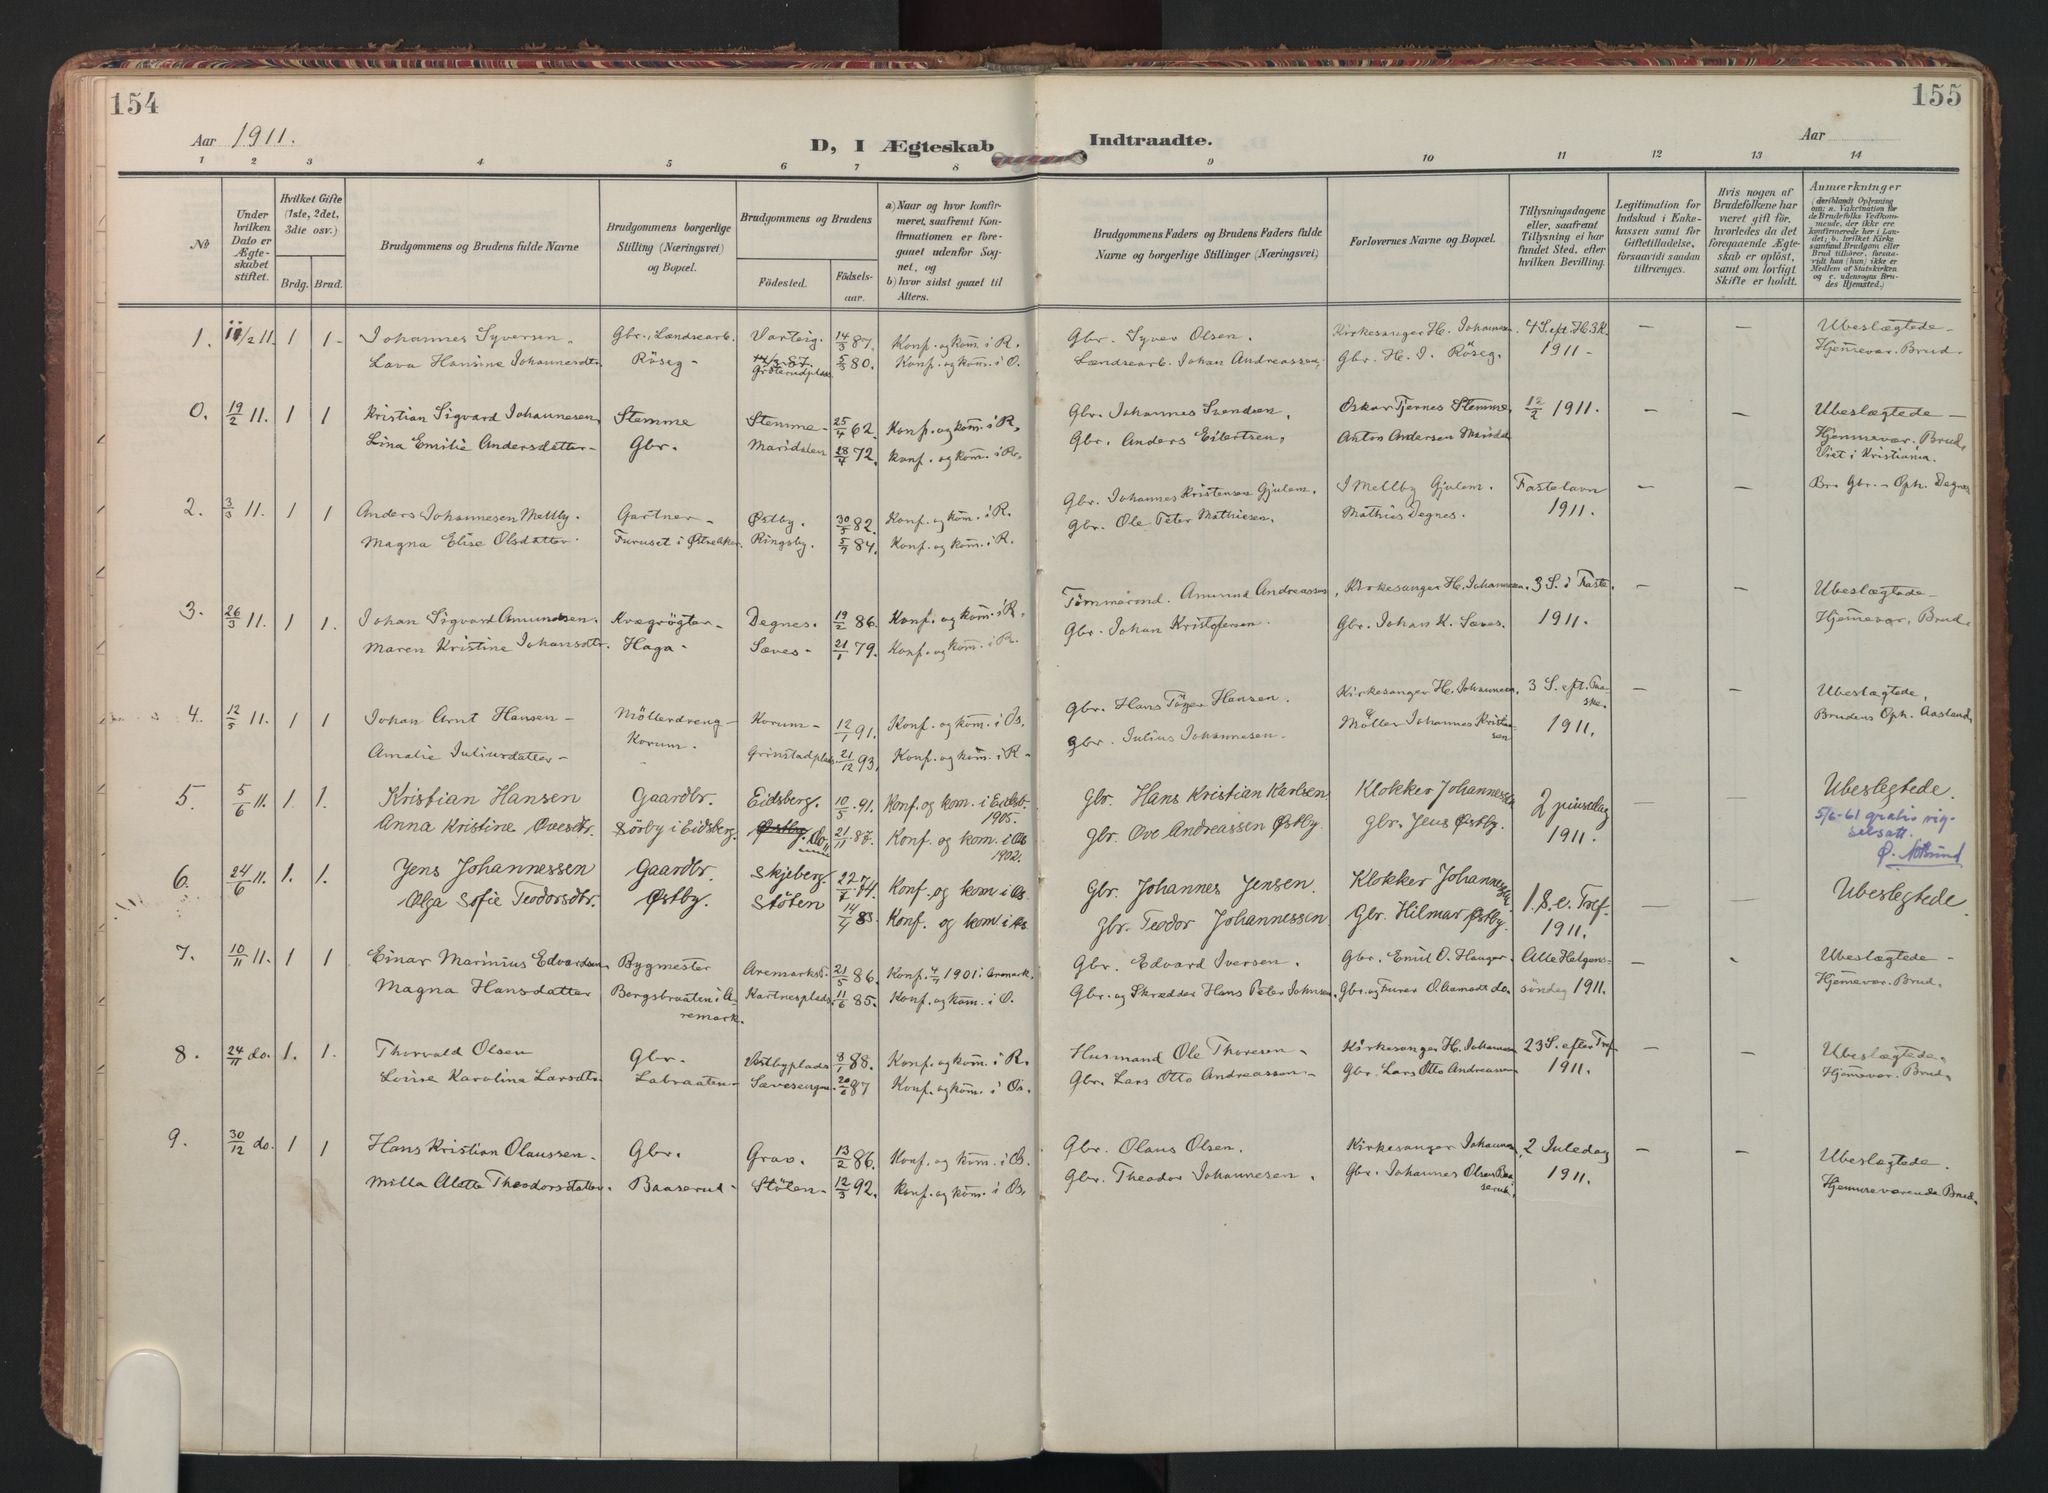 154
155
Aar 1911.
D, I Ægteskab Indtraadte.
Aar
1 2 3 4 5 6 7 8 9 10 11 12 13 14
No
Under hvilken Dato er Ægteskabet stiftet.
Hvilket Gifte (1ste, 2det, 3die osv.)
Brdg. Brud.
Brudgommens og Brudens fulde Navne
Brudgommens borgerlige Stilling (Næringsvei) og Bopæl.
Brudgommens og Brudens
Födested. Födselsaar.
a) Naar og hvor konfirmeret, saafremt Konfirmationen er foregaaet udenfor Sognet, og
b) hvor sidst gaaet til Alters.
Brudgommens Faders og Brudens Faders fulde Navne og borgerlige Stillinger (Næringsvei)
Forlovernes Navne og Bopæl.
Tillysningsdagene eller, saafremt Tillysning ei har fundet Sted, efter hvilken Bevilling.
Legitimation for Indskud i Enkekassen samt for Giftetilladelse, forsaavidt saadan tiltrænges.
Hvis nogen af Brudefolkene har været gift før, hvorledes da det foregaaende Ægteskab er oplöst, samt om lovligt Skifte er holdt.
Anmærkninger (deriblandt Oplysning om: a. Vakcination for de Brudefolks Vedkommende, der ikke ere konfirmerede her i Landet; b. hvilket Kirkesamfund Brudgom eller Brud tilhörer, forsaavidt han (hun) ikke er Medlem af Statskirken og c. udensogns Brudes Hjemsted.)
1. 11/2 11. 1 1 Johannes Syversen. Gbr. Landsearb. Varteig. 14/3 87. Konf. og kom. i R. Gbr. Syver Olsen. Kirkesanger H. Johannesen. 4 S. eft. H.3.K. — — Ubeslægtede
Lava Hansine Johannesdtr. Röseg 5/3 80. Konf. og kom. i O. Landsearb. Johan Andreassen, Gbr. H. J. Röseg. 1911 Hjemmevær. Brud.
0. 19/2 11. 1 1 Kristian Sigvard Johannesen, Stemme Stemme 25/4 62. Konf. og kom. i R. Gbr. Johannes Svendsen, Oskar Tjernes Stemme, 12/2 1911. — — Ubeslægtede
Lina Emilie Andersdatter Gbr. Maridalen 28/4 72. Konf. og kom. i R. Gbr. Anders Eilertsen, Anton Andersen Hjemmevær. Brud.
Viet i Kristiania.
2. 3/3 11. 1 1 Anders Johannesen Mellby. Gartner Østby. 30/5 82. Konf. og kom. i R. Gbr. Johannes Kristensen Gjulem. J Mellby Gjulem. Fastelavn — — Br. Gbr. Oph. Degnes
Magna Elise Olsdatter Furuset i Østre Aker Ringsby. 5/7 84. Konf. og kom. i R. Gbr. Ole Peter Mathiesen. Mathies Degnes. 1911.
3. 26/3 11. 1 1 Johan Sigvard Amundsen. Kvægrögter Degnes. 19/2 86. Konf. og kom. i R. Tömmermd. Amund Andreassen, Kirkesanger H. Johannesen. 3 S. i Faste — — Ubeslægtede
Maren Kristine Johansdtr. Haga Sæves 21/1 79. Konf. og kom. i R. Gbr. Johan Kristofersen. Gbr. Johan K. Sæves. 1911. Hjemmevær. Brud.
4. 12/5 11. 1 1 Johan Arnt Hansen Möllerdreng Korum 12/1 91. Konf. og kom. i Øs. Gbr. Hans Hansen. Kirkesanger H. Johannesen, 3 S. eft. Paaske. — — Ubeslægtede,
Amalie Juliusdatter Korum. Grimstadplads. 21/12 93. Konf. og kom. i R. Gbr. Julius Johannesen. Möller Johannes Kristensen 1911. Brudens Oph. Aasland.
5. 5/6 11. 1. 1. Kristian Hansen Gaardbr. Eidsberg. 10/5 91. Konf. og kom. i Eidsb. 1905. Gbr. Hans Kristian Karlsen. Klokker Johannessen 2 pinsedag — — Ubeslegtede.
Anna Kristine Ovesdtr. Sörby i Eidsberg. Østby. Do. 21/11 87. Konf. og kom. i Øs 1902. Gbr. Ove Andreassen Østby. Gbr. Jens Østby. 1911. 5/6-61 gratis vigselsatt.
6. 24/6 11. 1. 1. Jens Johannessen Gaardbr. Skjeberg 74 Konf. og kom i Øs. Gbr. Johannes Jensen. Klokker Johannessen 1. S. e. Tref. — — Ubeslegtede.
Olga Sofie Teodorsdtr. Østby. Stöten 14/4 83. Konf. og kom. i Øs. Gbr. Teodor Johannessen Gbr. Hilmar Østby. 1911.
7. 10/11 11. 1 1 Einar Marinius Edvardsen Bygmester Aremark. 21/5 86. Konf. 1901 i Aremark. Gbr. Edvard Iversen. Gbr. Emil O. Hauger. Alle Helgens- — Ubeslægtede
Magna Hansdatter Bergsbraaten i Aremark. Kartnesplads. 11/6 85. Konf. og kom. i O. Gbr. og Skrædder Hans Peter Johnsen. Gbr. og Furer O. Aamodt do. söndag 1911. Hjemmevær. Brud.
8. 24/11 do. 1. 1. Thorvald Olsen Gbr. Østbyplads 8/1 88. Konf. og kom. i R. Husmand Ole Thoresen Kirkesanger H. Johannesen 23 S. efter Tref. — — Ubeslægtede.
Lovise Karolina Larsdtr. Labraaten Sævesengen 20/6 87 Konf. og kom. i Øs. Gbr. Lars Otto Andreassen Gbr. Lars Otto Andreassen 1911. Hjemmevær. Brud.
9. 30/12 do. 1 1 Hans Kristian Olaussen Gbr. Grav. 13/2 86. Konf. og kom. i Øs. Gbr. Olaus Olsen. Kirkesanger Johannesen 2 Juledag — — Ubeslægtede.
Milla Alette Theodorsdatter Baaserud Stöten 12/3 92. Konf. og kom. i Øs. Gbr. Theodor Johannesen. Gbr. Johannes Olsen Baaserud. 1911. Hjemmeværende Brud.